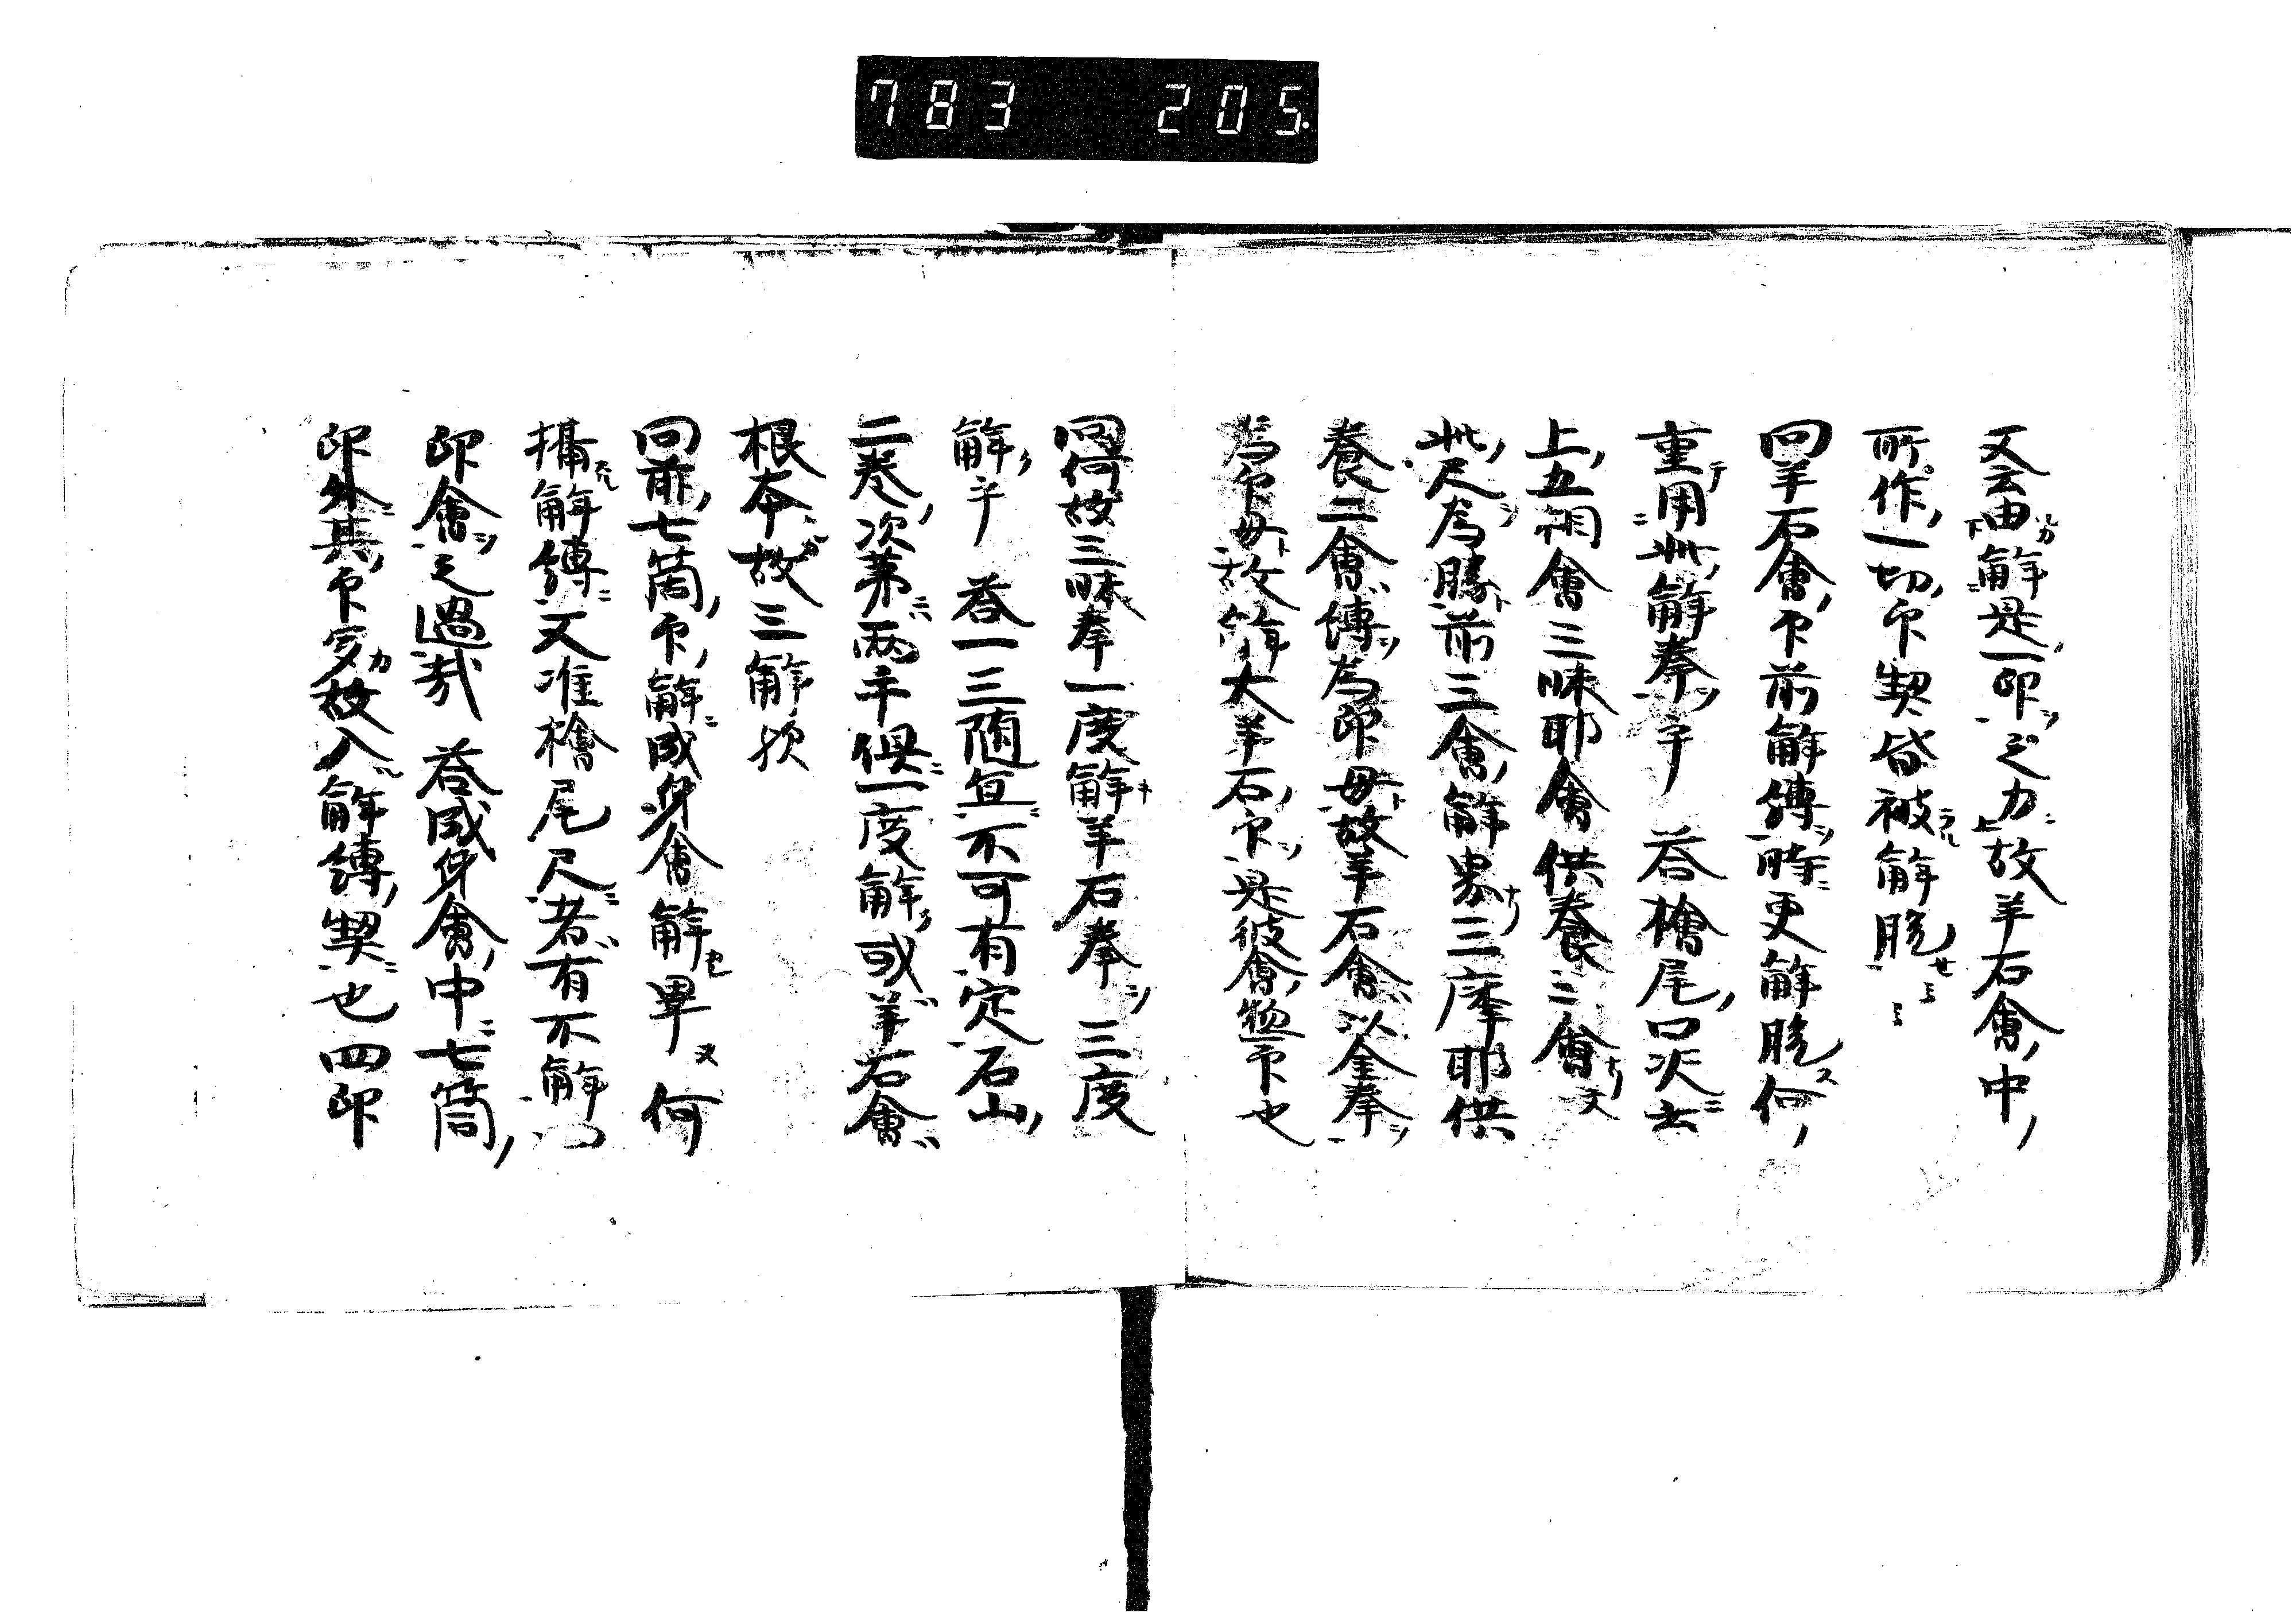 783 205
又云由解是一印之力故羊石會中
所作一切印契皆被解脱
問羊石會印前解縛時更解脱何
重用此解拳乎 答檜尾口决云
上五相會三昧耶會供養三會文
此尺為勝前三會解畢三摩耶供
養二會縛為印母故羊石會以金拳
為印母故解大羊石印是彼會惣印也
問何故三昧拳一度解羊石拳三度
解乎 答一三随宜不可有定石山
二巻次第两手俱一度解或羊石會
根本故三解欤
問前七箇印解成身會解畢又何
攝解縛文准檜尾尺者有不解
印會之過哉 答成身會中七箇
印外其印多故入解縛契也四印